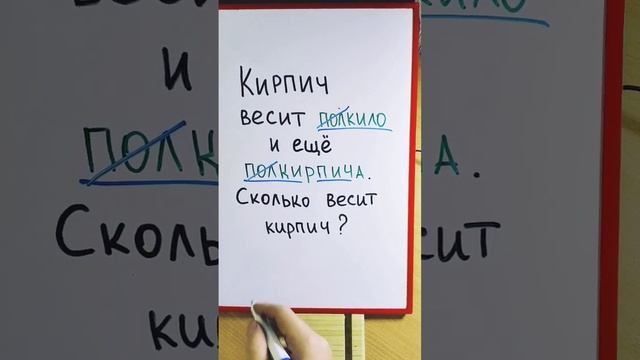 Кирпич
весит полкило
и ещё
полкирпича.
Сколько весит
кирпич?